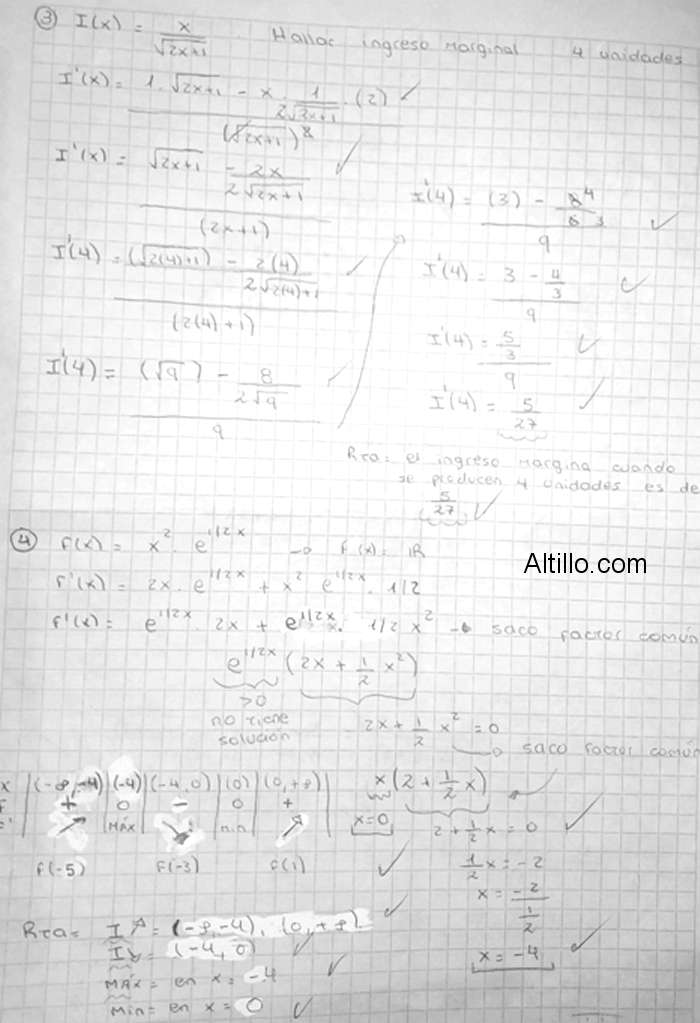 ③ I(x) = x / √2x+1 . Hallar ingreso marginal 4 unidades
I'(x) = (1·√2x+1 - x · 1/(2√2x+1) · (2)) / (√2x+1)² ✓
I'(x) = (√2x+1 - 2x/(2√2x+1)) / (2x+1) ✓
I'(4) = ((√2(4)+1) - 2(4)/(2√2(4)+1)) / (2(4)+1) ✓
I'(4) = ((√9) - 8/(2√9)) / 9 ✓
I'(4) = ((3) - 8 4/6 3) / 9 ✓
I'(4) = (3 - 4/3) / 9 ✓
I'(4) = (5/3) / 9 ✓
I'(4) = 5/27 ✓
Rta= el ingreso margina cuando
se producen 4 unidades es de
5/27 ✓
④ F(x) = x² · e^1/2x → F(x) = IR
Altillo.com
F'(x) = 2x · e^1/2x + x² e^1/2x · 1/2
F'(x) = e^1/2x · 2x + e^1/2x · 1/2 x² → saco factor común
e^1/2x (2x + 1/2 x²)
>0
no tiene
solución
2x + 1/2 x² = 0
→ saco factor común
x (2 + 1/2 x)
x=0
2 + 1/2 x = 0 ✓
1/2 x = -2
x = -2 / (1/2)
x = -4 ✓
x | (-∞,-4) | (-4) | (-4,0) | (0) | (0,+∞) |
F' | + | 0 | - | 0 | + |
| ↗ | MÁX | ↘ | min | ↗ |
F(-5) F(-3) F(1) ✓
Rta= I↗ = (-∞,-4), (0,+∞) ✓
I↘ = (-4,0) ✓
MÁX = en x = -4 ✓
Min = en x = 0 ✓